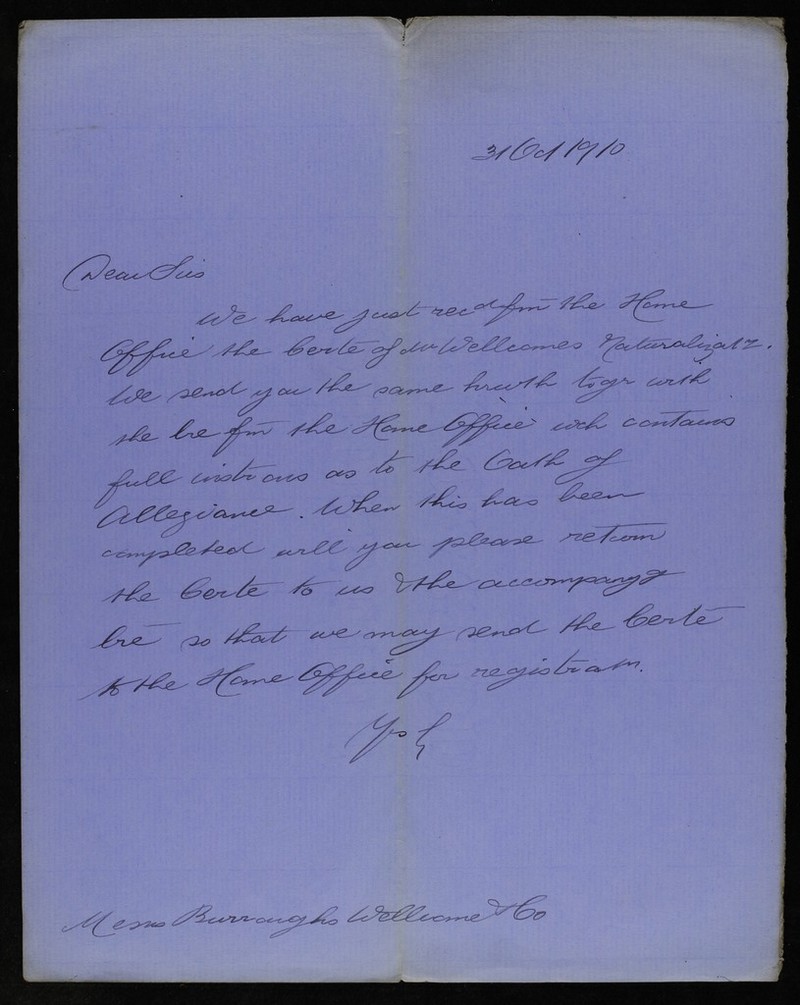 31 Oct 1910
Dear Sirs
We have just recd fm the Home
Office the Certe of Mr Wellcomes Naturalizatn.
We send you the same hrwth togr with
the lre fm the Home Office wch contains
full instrons as to the Oath of
Allegiance. When this has been
completed will you please return
the Certe to us & the accompanyg
lre so that we may send the Certe
to the Home Office for registratn.
Yrs
Messrs Burroughs Wellcome & Co